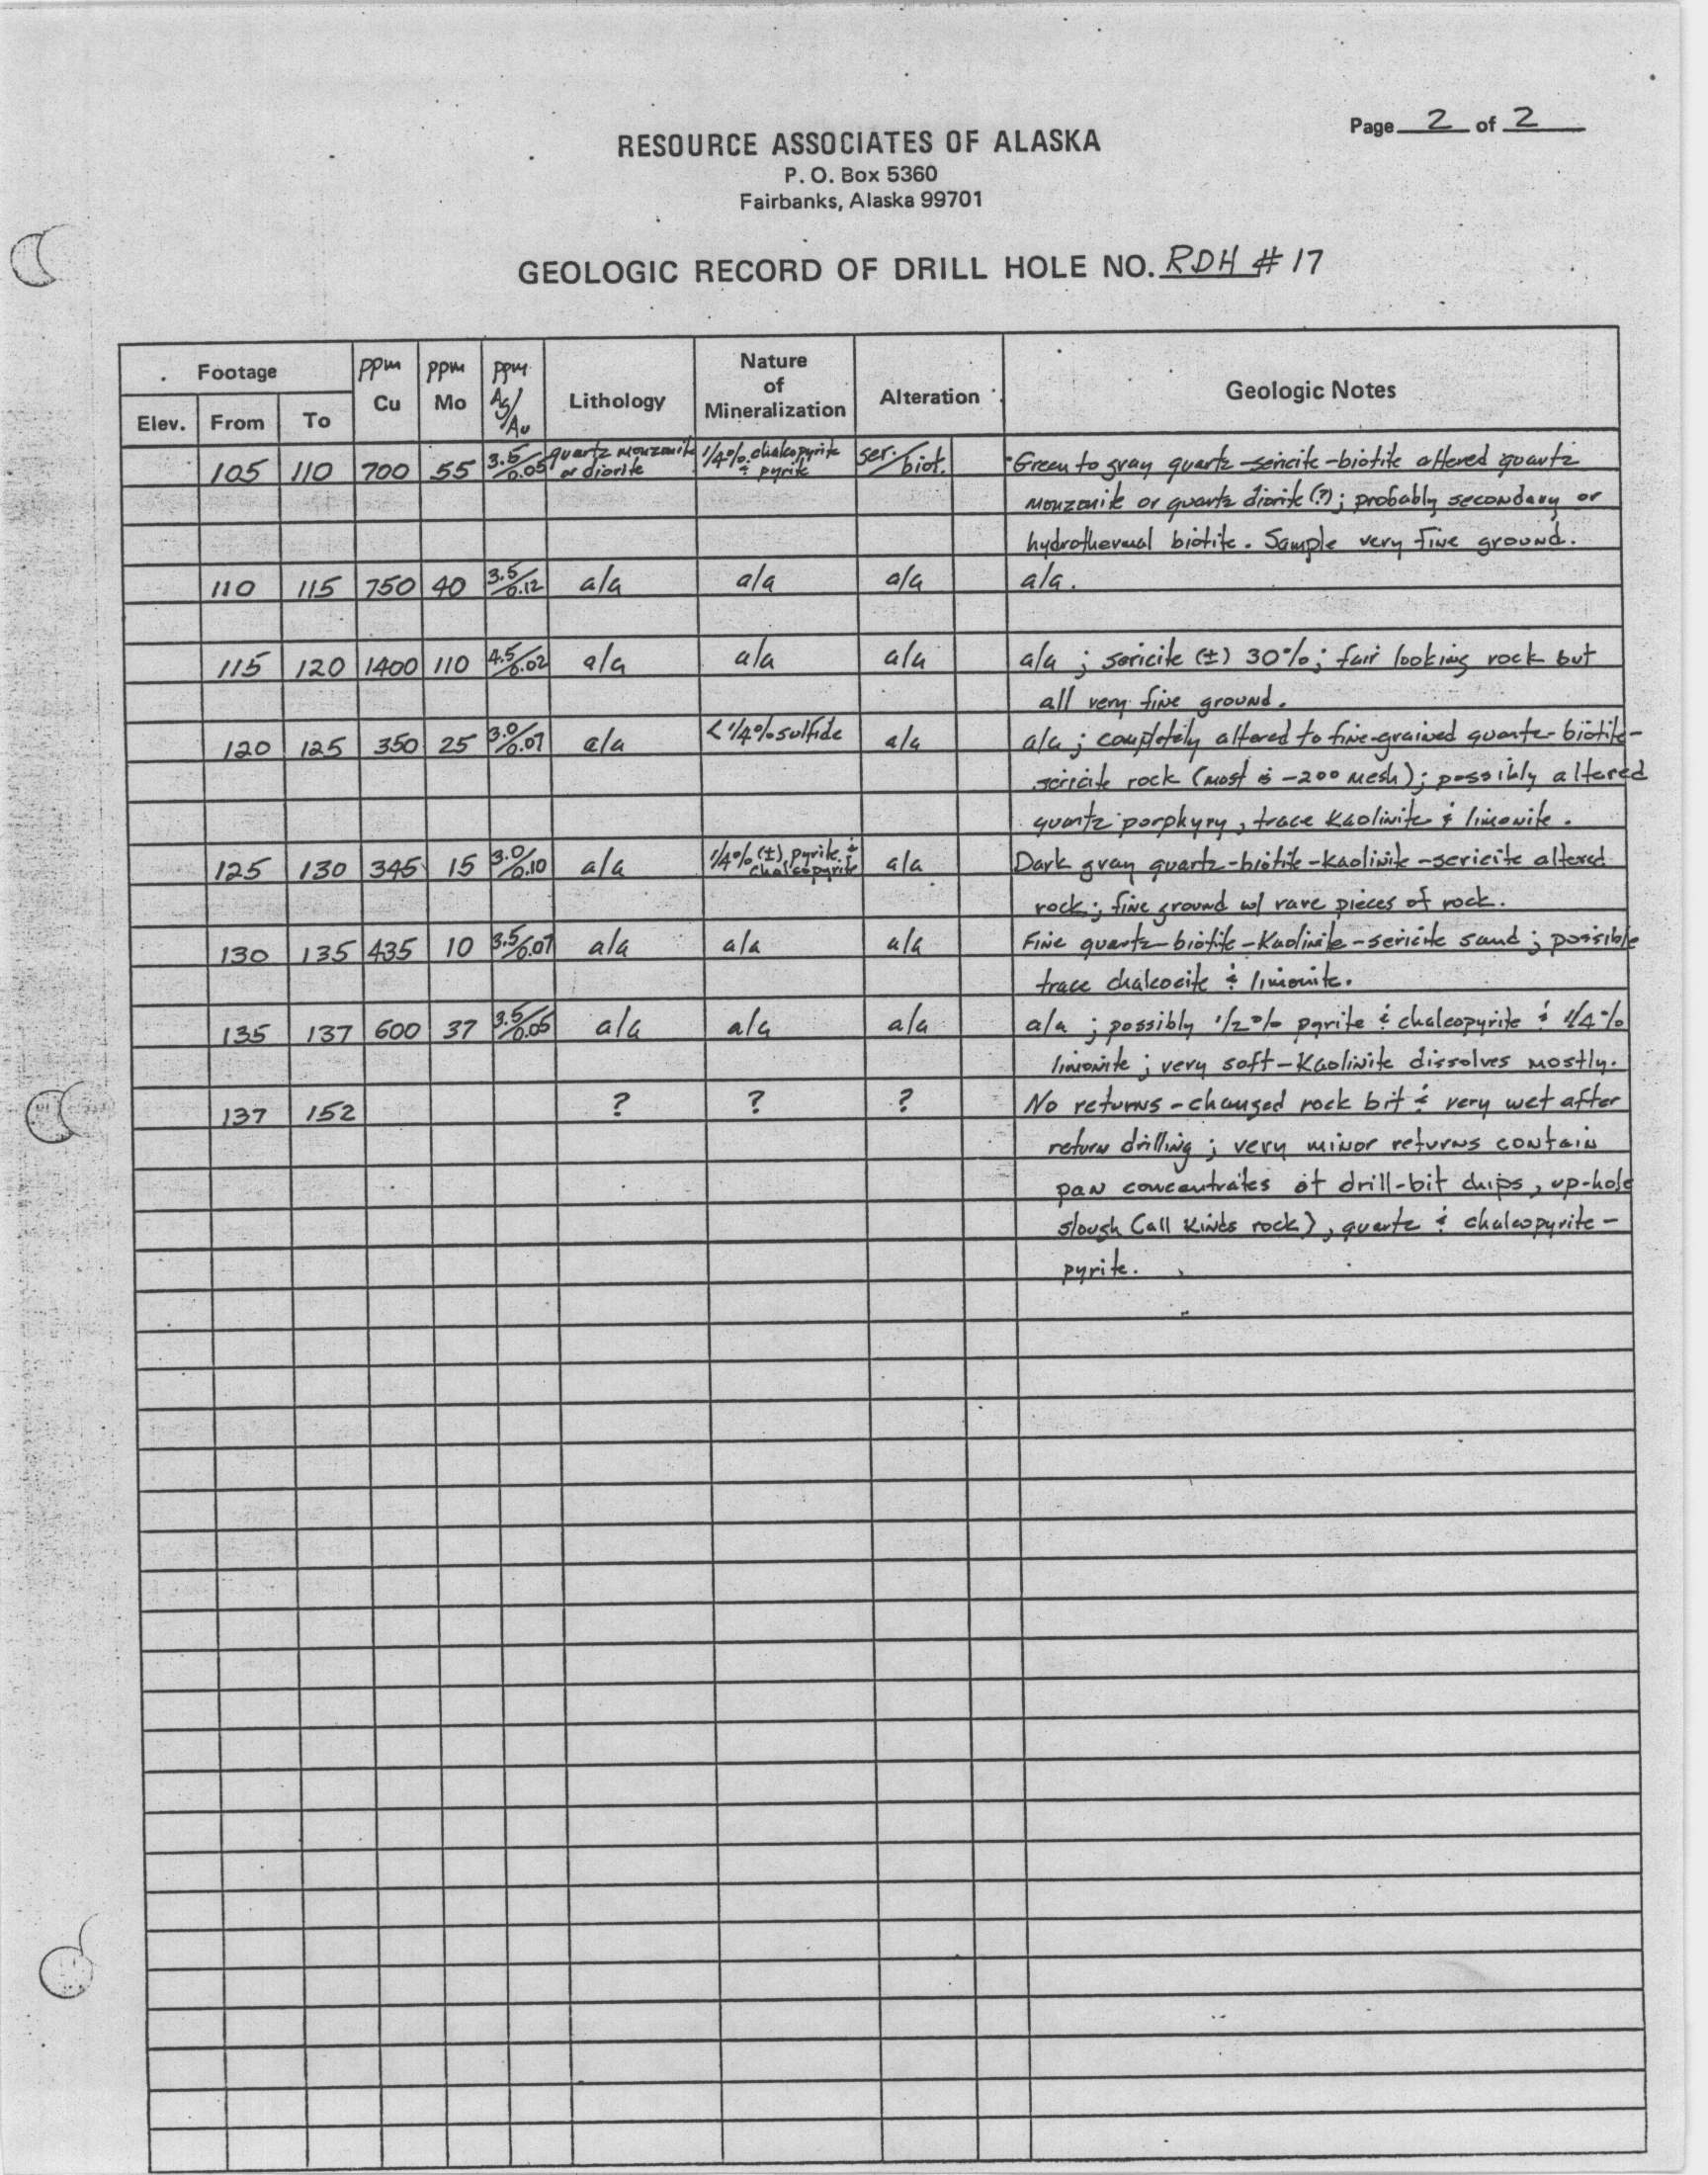 Page 2 of 2
RESOURCE ASSOCIATES OF ALASKA
P. O. Box 5360
Fairbanks, Alaska 99701
GEOLOGIC RECORD OF DRILL HOLE NO. RDH #17
Footage ppm Cu ppm Mo ppm Ag/Au Lithology Nature of Mineralization Alteration Geologic Notes
Elev. From To
105 110 700 55 3.5/0.05 quartz monzonite or diorite 1/4% chalcopyrite & pyrite ser./biot. Green to gray quartz-sericite-biotite altered quartz
monzonite or quartz diorite (?); probably secondary or
hydrothermal biotite. Sample very fine ground.
110 115 750 40 3.5/0.12 a/a a/a a/a a/a.
115 120 1400 110 4.5/0.02 a/a a/a a/a a/a; sericite (±) 30%; fair looking rock but
all very fine ground.
120 125 350 25 3.0/0.07 a/a <1/4% sulfide a/a a/a; completely altered to fine-grained quartz-biotite-
sericite rock (most is -200 mesh); possibly altered
quartz porphyry, trace kaolinite & limonite.
125 130 345 15 3.0/0.10 a/a 1/4% (±) pyrite & chalcopyrite a/a Dark gray quartz-biotite-kaolinite-sericite altered
rock; fine ground w/ rare pieces of rock.
130 135 435 10 3.5/0.07 a/a a/a a/a Fine quartz-biotite-kaolinite-sericite sand; possible
trace chalcocite & limonite.
135 137 600 37 3.5/0.05 a/a a/a a/a a/a; possibly 1/2% pyrite & chalcopyrite & 1/4%
limonite; very soft-kaolinite dissolves mostly.
137 152 ? ? ? No returns-changed rock bit & very wet after
return drilling; very minor returns contain
pan concentrates of drill-bit chips, up-hole
slough (all kinds rock), quartz & chalcopyrite-
pyrite.